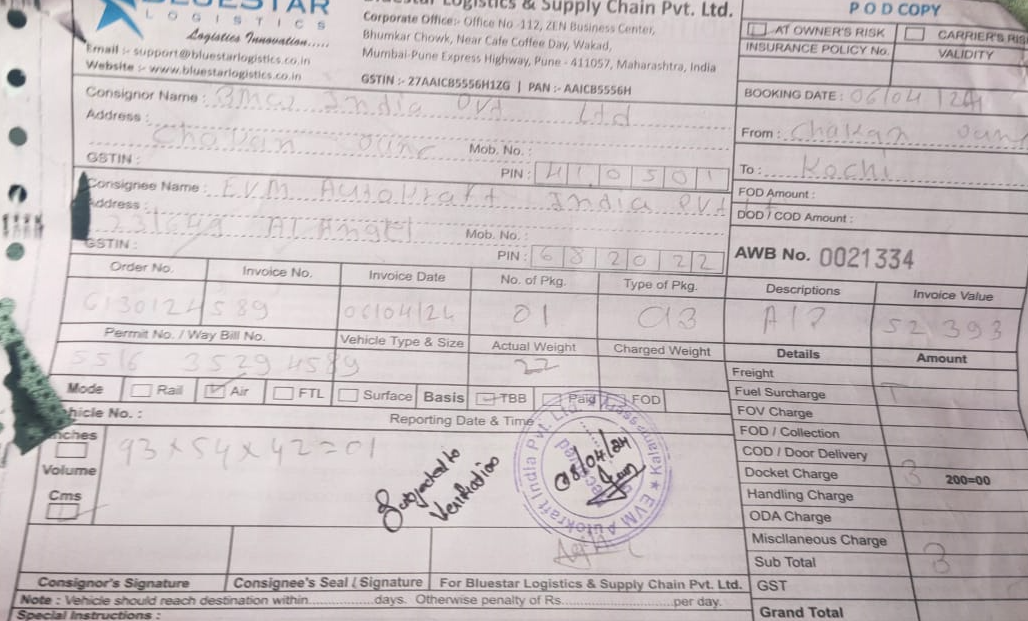 BLUESTAR
LOGISTICS
Logistics Innovation.....
Email :- support@bluestarlogistics.co.in
Website :- www.bluestarlogistics.co.in
Logistics & Supply Chain Pvt. Ltd.
Corporate Office:- Office No -112, ZEN Business Center,
Bhumkar Chowk, Near Cafe Coffee Day, Wakad,
Mumbai-Pune Express Highway, Pune - 411057, Maharashtra, India
GSTIN :- 27AAICB5556H1ZG | PAN :- AAICB5556H
POD COPY
AT OWNER'S RISK CARRIER'S RIS
INSURANCE POLICY No. VALIDITY
BOOKING DATE : 06/04/24
From : Chakan
To : Kochi
FOD Amount :
DOD / COD Amount :
AWB No. 0021334
Consignor Name : India Pvt Ltd
Address :
Mob. No. :
GSTIN : PIN : 410501
Consignee Name : EVM Autokraft India Pvt
Address :
Mob. No. :
GSTIN : PIN : 682022
Order No. Invoice No. Invoice Date No. of Pkg. Type of Pkg. Descriptions Invoice Value
6130124589 06/04/24 01 52393
Permit No. / Way Bill No. Vehicle Type & Size Actual Weight Charged Weight Details Amount
5516 3529 4589 22
Mode Rail Air FTL Surface Basis TBB Paid FOD
Vehicle No. : Reporting Date & Time
Inches
Volume
Cms
93×54×42=01
Subjected to
Verification
EVM Autokraft India Pvt. Ltd. Kalamassery
08/04/24
Freight
Fuel Surcharge
FOV Charge
FOD / Collection
COD / Door Delivery
Docket Charge 200=00
Handling Charge
ODA Charge
Miscllaneous Charge
Sub Total
GST
Grand Total
Consignor's Signature Consignee's Seal / Signature For Bluestar Logistics & Supply Chain Pvt. Ltd.
Note : Vehicle should reach destination within................days. Otherwise penalty of Rs...........................per day.
Special Instructions :